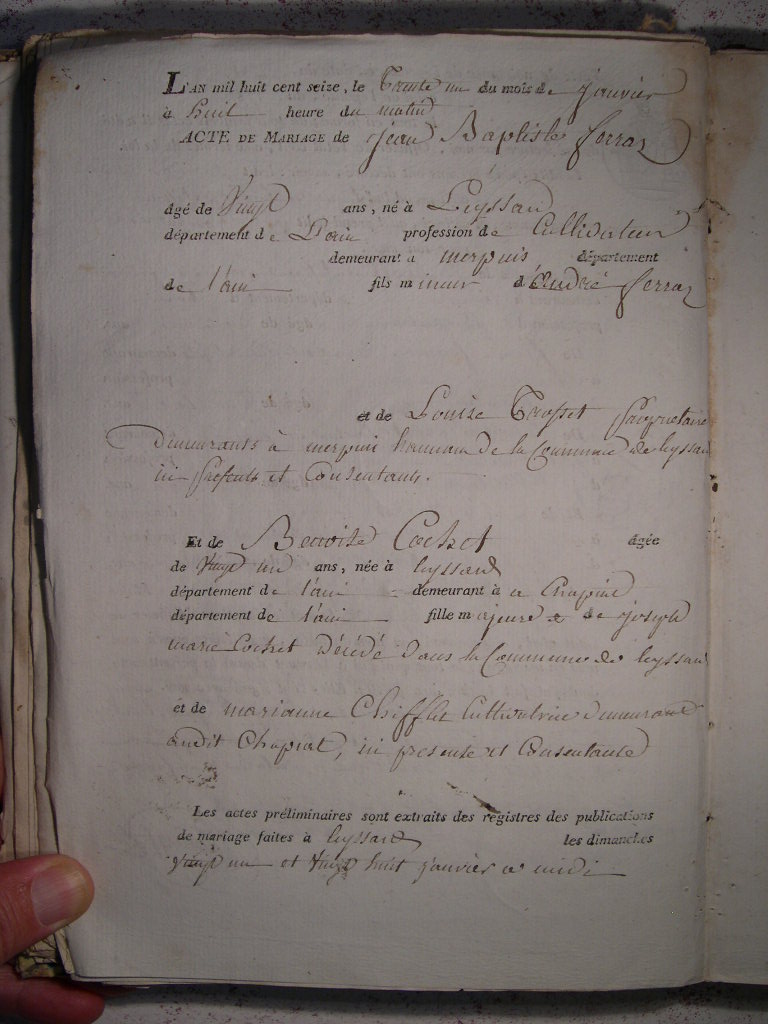 L'AN mil huit cent seize, le Trente un du mois de janvier
à huit heure du matin
ACTE DE MARIAGE de jean Baptiste ferraz
âgé de Vingt ans, né à Leyssard
département de L'ain profession de Cultivateur
demeurant à merpuis département
de l'ain fils mineur d'André ferraz
et de Louise proprietaire
Demeurants à merpuis hameau de la Commune de leyssard
ici presents et Consentants.
Et de Benoite Cochet âgée
de Vingt un ans, née à leyssard
département de l'ain demeurant à a Chapiat
département de l'ain fille majeure de joseph
marie Cochet Décédé Dans la Commune de leyssard
et de marianne Chifflet Cultivatrice demeurant
audit Chapiat, ici presente et Consentante
Les actes préliminaires sont extraits des registres des publications
de mariage faites à leyssard les dimanches
Vingt un et Vingt huit janvier a midi